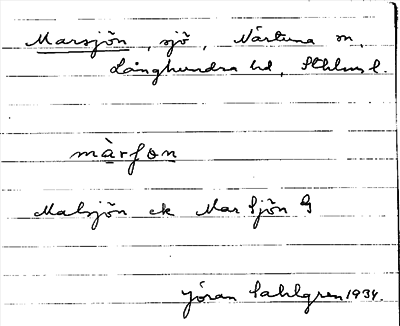 Marsjön, sjö, Närtuna sn,
Långhundra hd, Sthlms l.
màrfɷn
Malsjön ek Mar Sjön G
Jöran Sahlgren 1934.